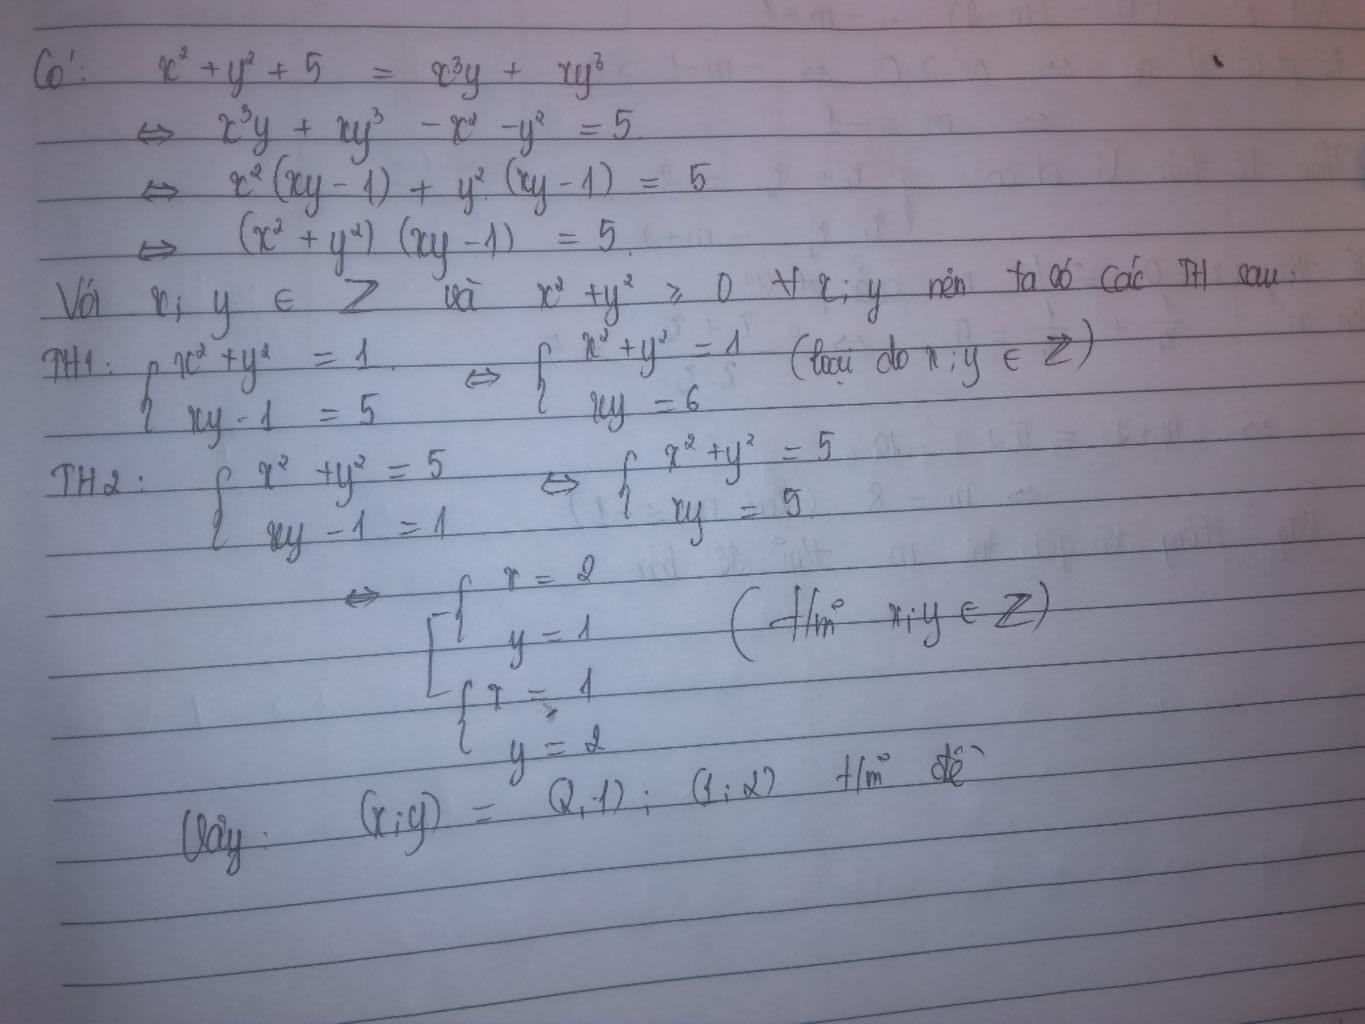 Có: x² + y² + 5 = x³y + xy³
⇔ x³y + xy³ - x² - y² = 5
⇔ x² (xy - 1) + y² (xy - 1) = 5
⇔ (x² + y²) (xy - 1) = 5
Với x; y ∈ Z và x² + y² ≥ 0 ∀ x; y nên ta có các TH sau:
TH1: { x² + y² = 1 ⇔ { x² + y² = 1 (loại do x; y ∈ Z)
xy - 1 = 5 xy = 6
TH2: { x² + y² = 5 ⇔ { x² + y² = 5
xy - 1 = 1 xy = 5
⇔ [ { x = 2
y = 1 (t/m x; y ∈ Z)
{ x = 1
y = 2
Vậy: (x; y) = (2; 1); (1; 2) t/m đề